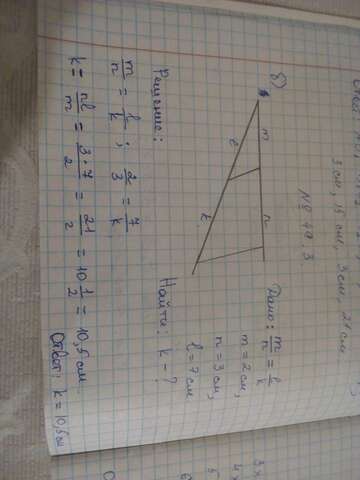 3 см, 15 см, 3 см, 21 см
№ 49.3
б)
m
n
l
k
Дано: m/n = l/k
m = 2 см,
n = 3 см,
l = 7 см
Найти: k - ?
Решение:
m/n = l/k ; 2/3 = 7/k
k = nl/m = 3·7/2 = 21/2 = 10 1/2 = 10,5 см
Ответ: k = 10,5 см